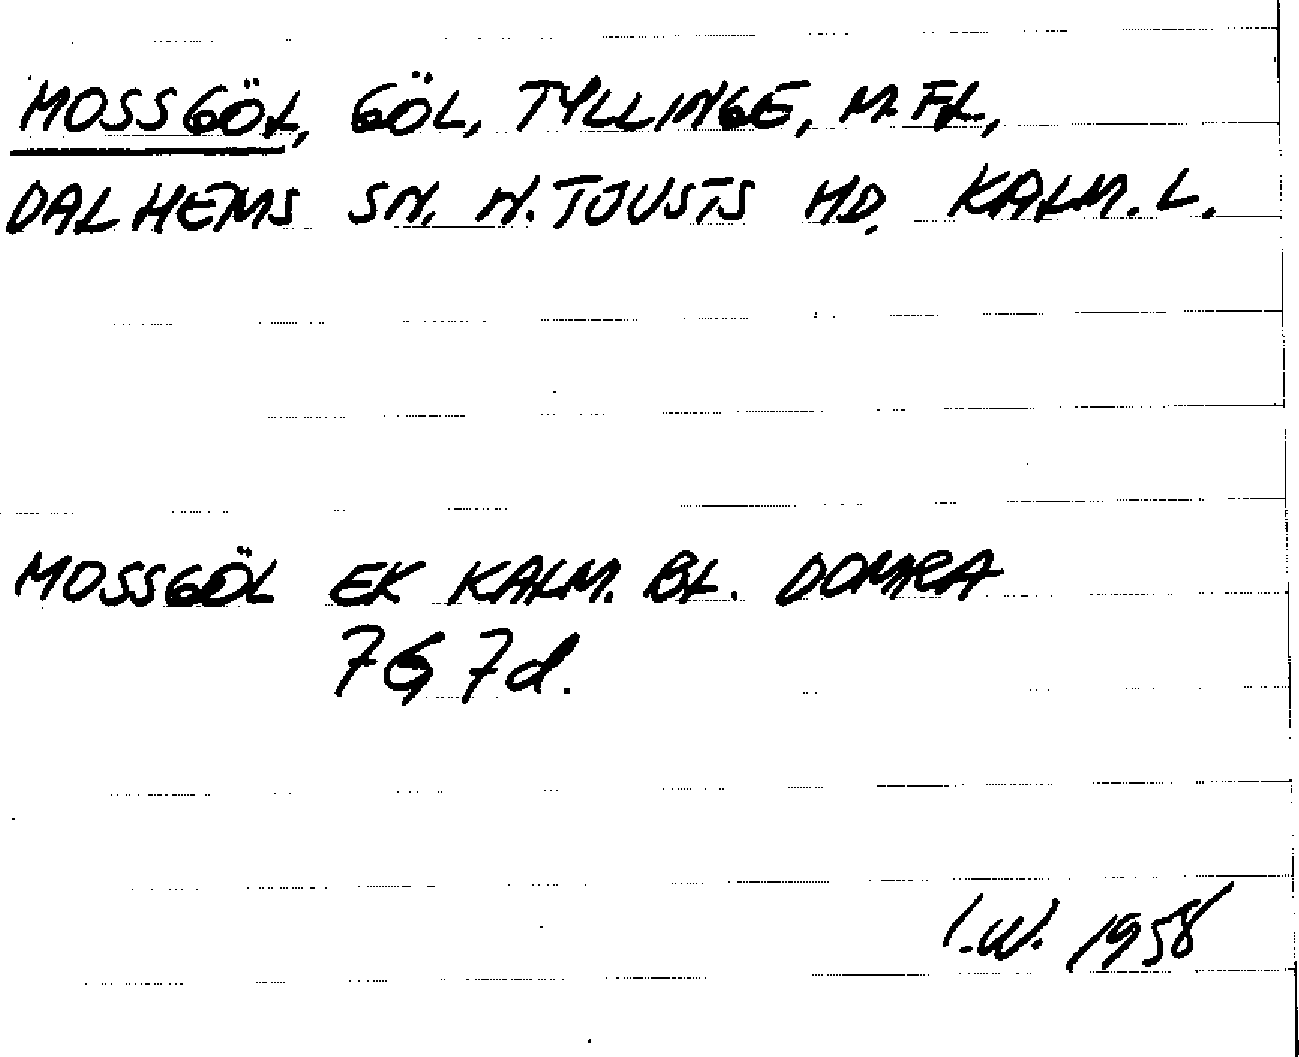 MOSSGÖL, GÖL, TYLLINGE, M.FL.,
DALHEMS SN. N. TJUSTS HD. KALM. L.
MOSSGÖL EK KALM. BL. DOMRA
7G 7d.
I.W. 1958